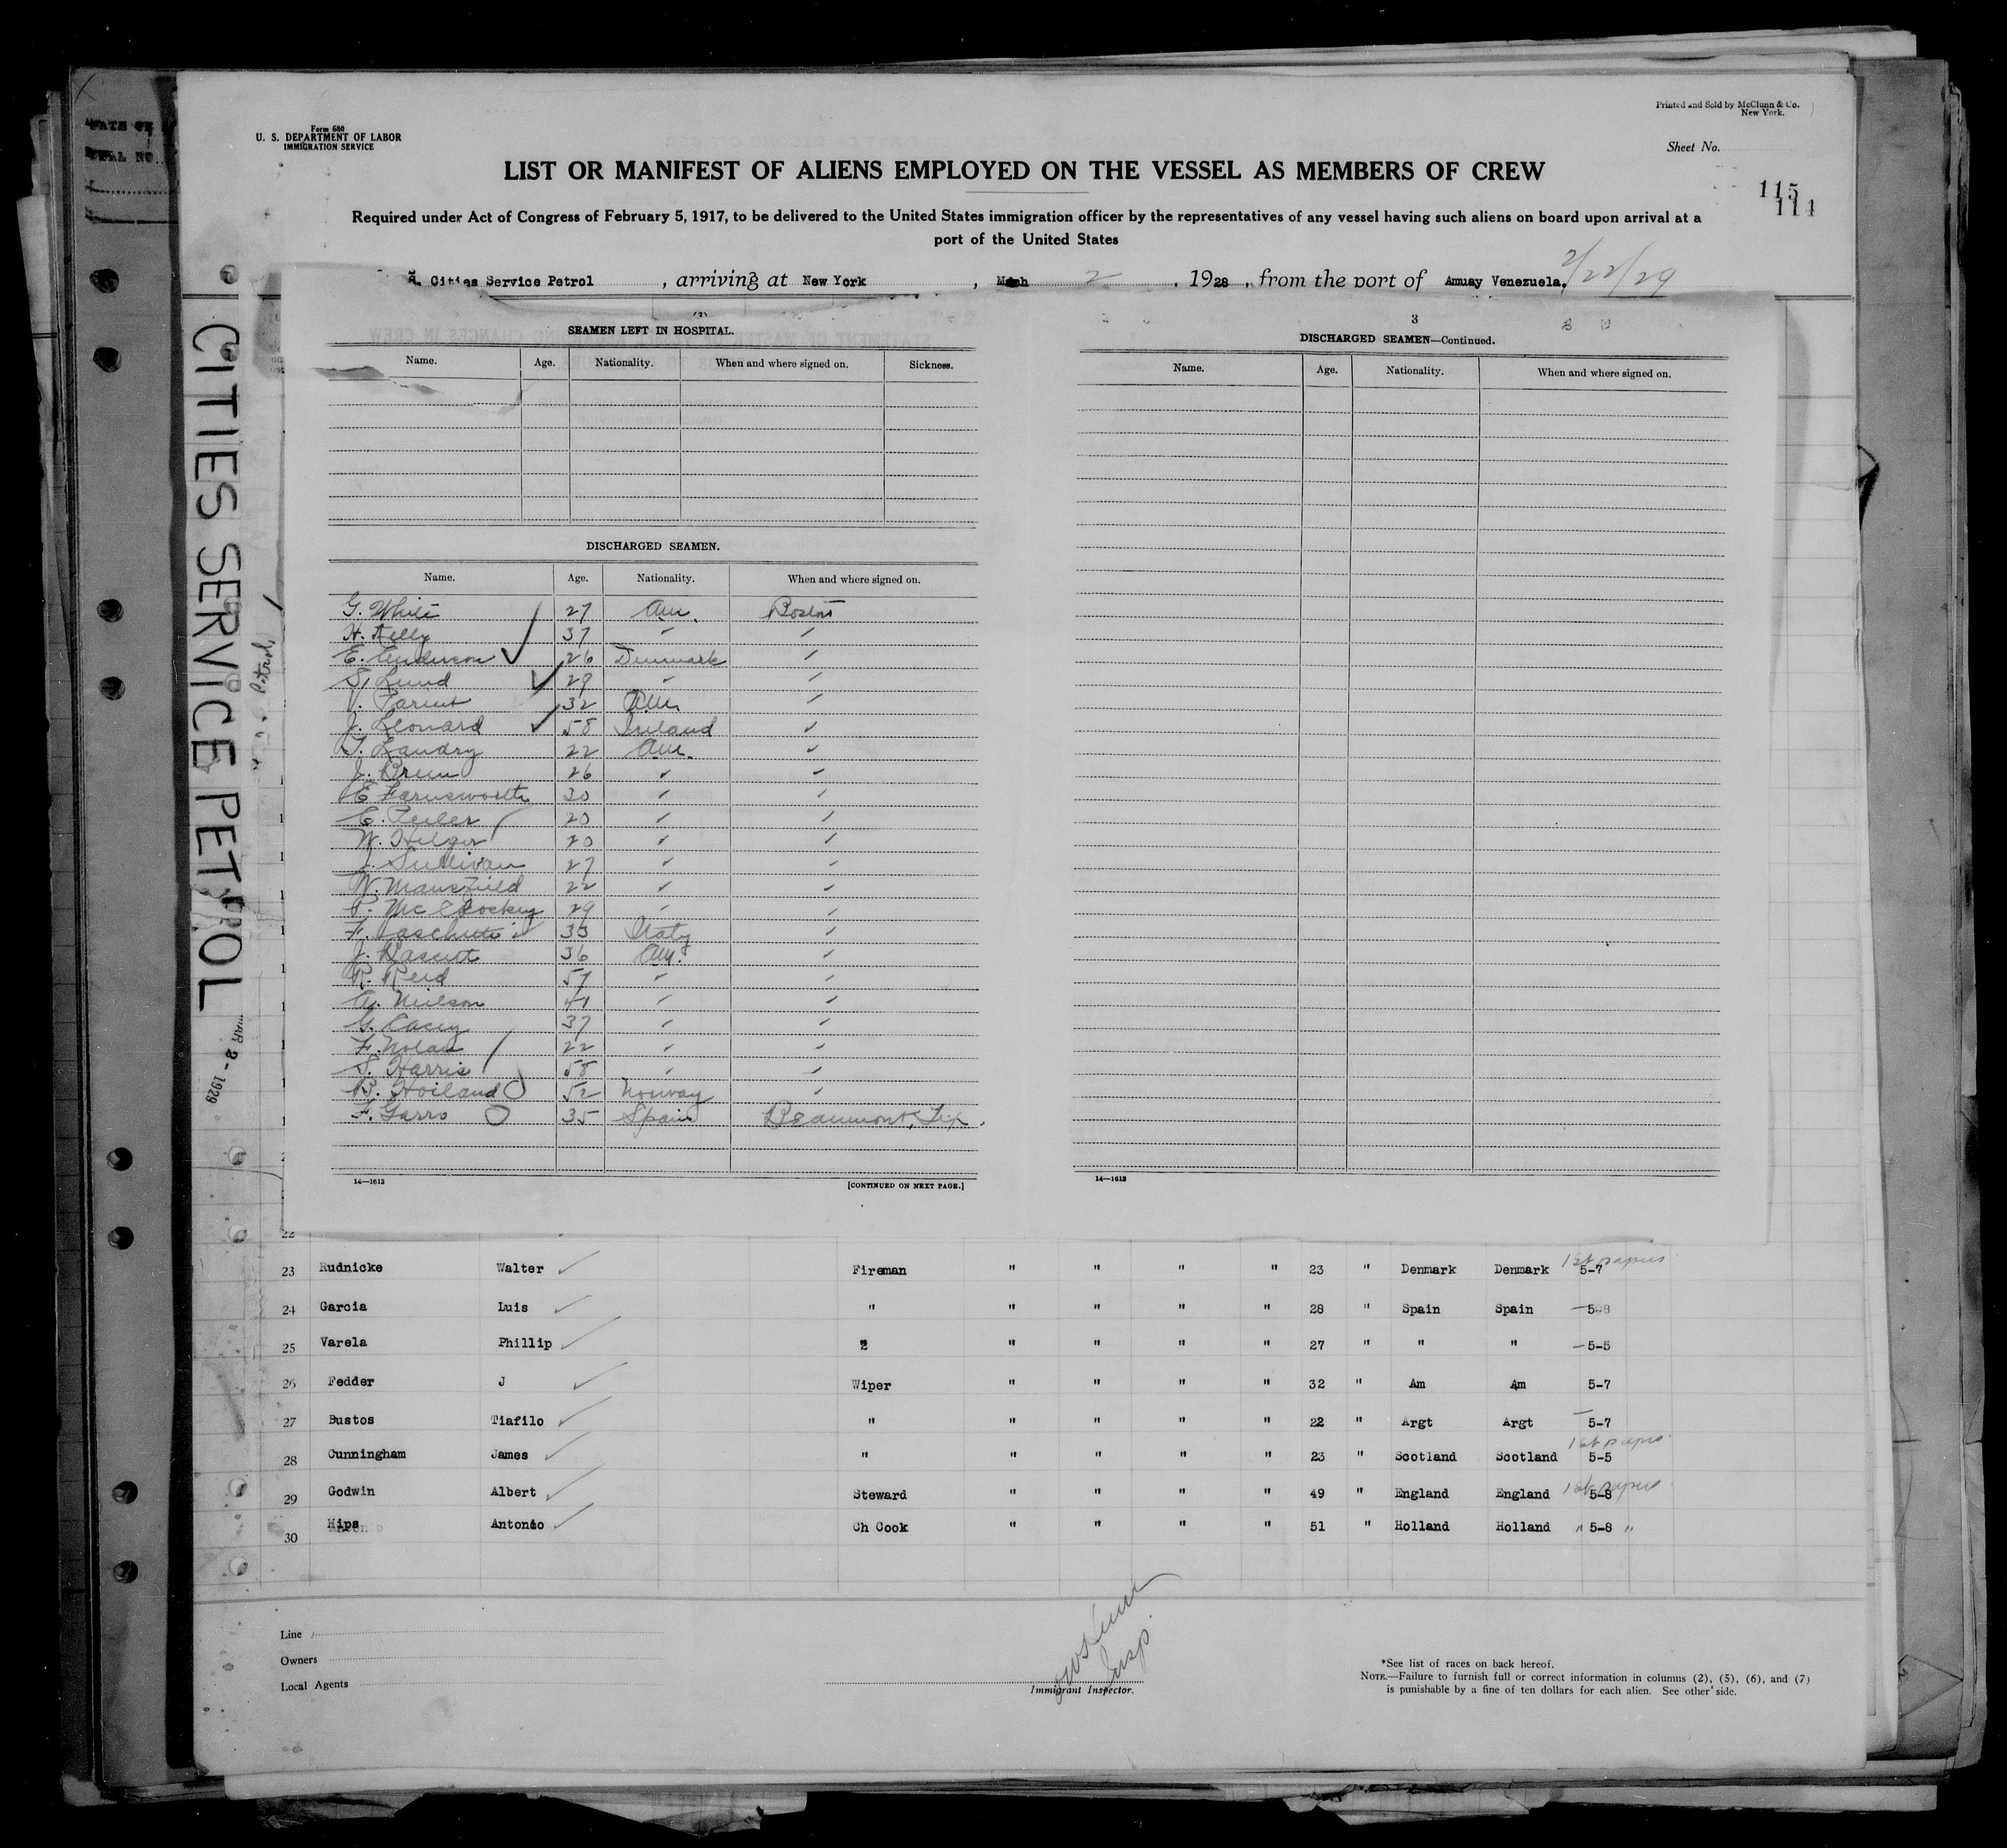 Form 680
U. S. DEPARTMENT OF LABOR
IMMIGRATION SERVICE
Printed and Sold by McClunn & Co.
New York.
Sheet No.
LIST OR MANIFEST OF ALIENS EMPLOYED ON THE VESSEL AS MEMBERS OF CREW
115
114
Required under Act of Congress of February 5, 1917, to be delivered to the United States immigration officer by the representatives of any vessel having such aliens on board upon arrival at a
port of the United States
Cities Service Petrol , arriving at New York , 2 , 1928 , from the port of Amuay Venezuela. 2/22/29
CITIES SERVICE PETROL
MAR 2 - 1929
Petrol
(2)
SEAMEN LEFT IN HOSPITAL.
Name. Age. Nationality. When and where signed on. Sickness.
DISCHARGED SEAMEN.
Name. Age. Nationality. When and where signed on.
G. White 27 Am. Boston
H. Kelly 37 "
E. Anderson 26 Denmark "
S. Lund 29 " "
V. Parent 32 Am. "
J. Leonard 58 Ireland "
T. Landry 22 Am. "
J. 26 " "
E Farnsworth 30 " "
E. 20 " "
W. Hilger 20 " "
J. Sullivan 27 " "
W. Mansfield 22 " "
P. 29 " "
F. 33 Italy "
J. 36 Am. "
R. Reid 57 "
Nielson 41 " "
G. Casey 37 " "
F. Nolan 22 " "
S. Harris 58 " "
B. Hoiland 52 Norway "
F. Garro 35 Spain Beaumont, Tex.
14—1613 [CONTINUED ON NEXT PAGE.]
3
DISCHARGED SEAMEN—Continued.
Name. Age. Nationality. When and where signed on.
14—1613
22
23 Rudnicke Walter Fireman " " " " 23 " Denmark Denmark 1st papers 5-7
24 Garcia Luis " " " " " 28 " Spain Spain 5-8
25 Varela Phillip " " " " 27 " " " 5-5
26 Fedder J Wiper " " " " 32 " Am Am 5-7
27 Bustos Tiafilo " " " " " 22 " Argt Argt 5-7
28 Cunningham James " " " " " 23 " Scotland Scotland 1st papers 5-5
29 Godwin Albert Steward " " " " 49 " England England 1st papers 5-8
30 Hips Antonio Ch Cook " " " " 51 " Holland Holland " 5-8 "
Line
Owners
Local Agents
Insp.
Immigrant Inspector.
*See list of races on back hereof.
NOTE.—Failure to furnish full or correct information in columns (2), (5), (6), and (7)
is punishable by a fine of ten dollars for each alien. See other side.